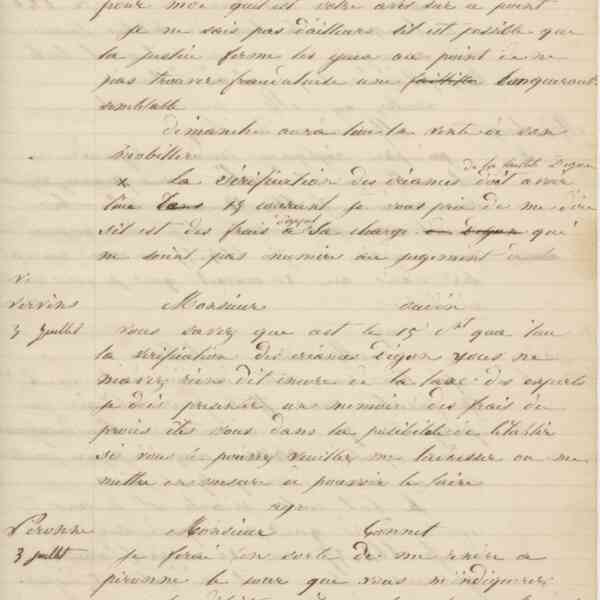 pour moi quel est votre avis sur ce point
je ne sais pas d'ailleurs s'il est posible que
la justice ferme les yeux au point de ne
pas trouver frauduleuse une banqueroute
semblable
dimanche aura lieu la vente de son
mobillier
de la faillite Digon
x la vérification des créances doit avoir
lieu 15 courant je vous prie de me dire
s'il est des frais d'appel à sa charge qui
ne soient pas numéré au jugement
Vervins Monsieur
3 juillet vous savez que cest le 15 ct qua lieu
la verification des créances Digon vous ne
mavez riens dit encore de la taxe des experts
je dois presenter un memoir des frais de
procès êtes vous dans la posibilité de l'établir
si vous le pouvez veuillez me ou me
mettre en mesure de pouvoir le faire
Peronne Monsieur Gonnet
3 juillet je ferai en sorte de me rendre a
peronne le jour que vous m'indiquerez